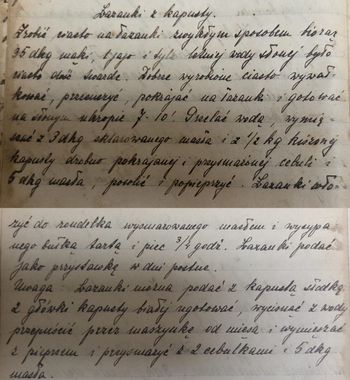 Łazanki z kapusty.
Zrobić ciasto na łazanki zwykłym sposobem biorąc
35 dkg mąki, 1 jajo i tyle letniej wody słonej by było
ciasto dość twarde. Dobrze wyrobione ciasto wywał-
kować, przesuszyć, pokrajać na łazanki i gotować
na słonym ukropie 7-10'. Odcedzić wodą, wymie-
szać z 3 dkg sklarowanego masła i z 1/2 kg kiszonej
kapusty drobno pokrajanej i przysmażonej cebuli i
5 dkg masła, posolić i popieprzyć. Łazanki wło-
żyć do rondelka wysmarowanego masłem i wysypa-
nego bułką tartą i piec 3/4 godz. Łazanki podać
jako przystawkę w dni postne.
Uwaga: Łazanki można podać z kapustą słodką.
2 główki kapusty białej ugotować, wycisnąć z wody
przepuścić przez maszynkę od mięsa i wymieszać
z pieprzem i przysmażyć z 2 cebulkami i 5 dkg
masła.